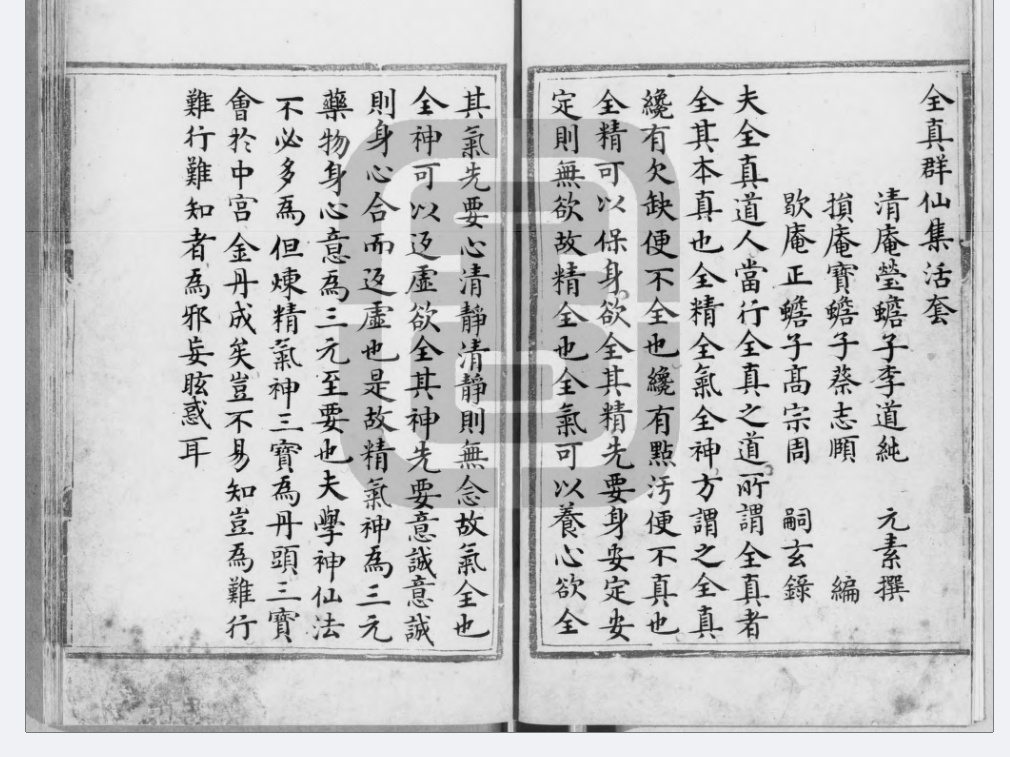 全真群仙集活套
清庵瑩蟾子李道純 元素撰
損庵寶蟾子蔡志頤 編
歇庵正蟾子髙宗周 嗣玄錄
夫全真道人當行全真之道所謂全真者
全其本真也全精全氣全神方謂之全真
纔有欠缺便不全也纔有點汚便不真也
全精可以保身欲全其精先要身安定安
定則無欲故精全也全氣可以養心欲全
其氣先要心清靜清靜則無念故氣全也
全神可以返虛欲全其神先要意誠意誠
則身心合而返虛也是故精氣神為三元
藥物身心意為三元至要也夫學神仙法
不必多為但煉精氣神三寶為丹頭三寶
會於中宮金丹成矣豈不易知豈為難行
難行難知者為邪妄眩惑耳